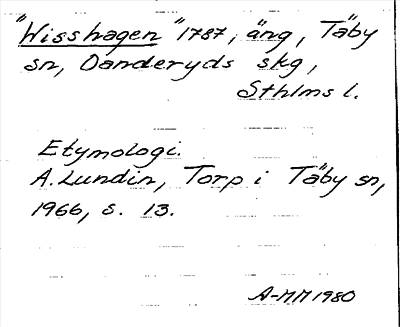 "Wisshagen" 1787, äng, Täby
sn, Danderyds skg,
Sthlms l.
Etymologi.
A. Lundin, Torp i Täby sn,
1966, s. 13.
A-MM 1980